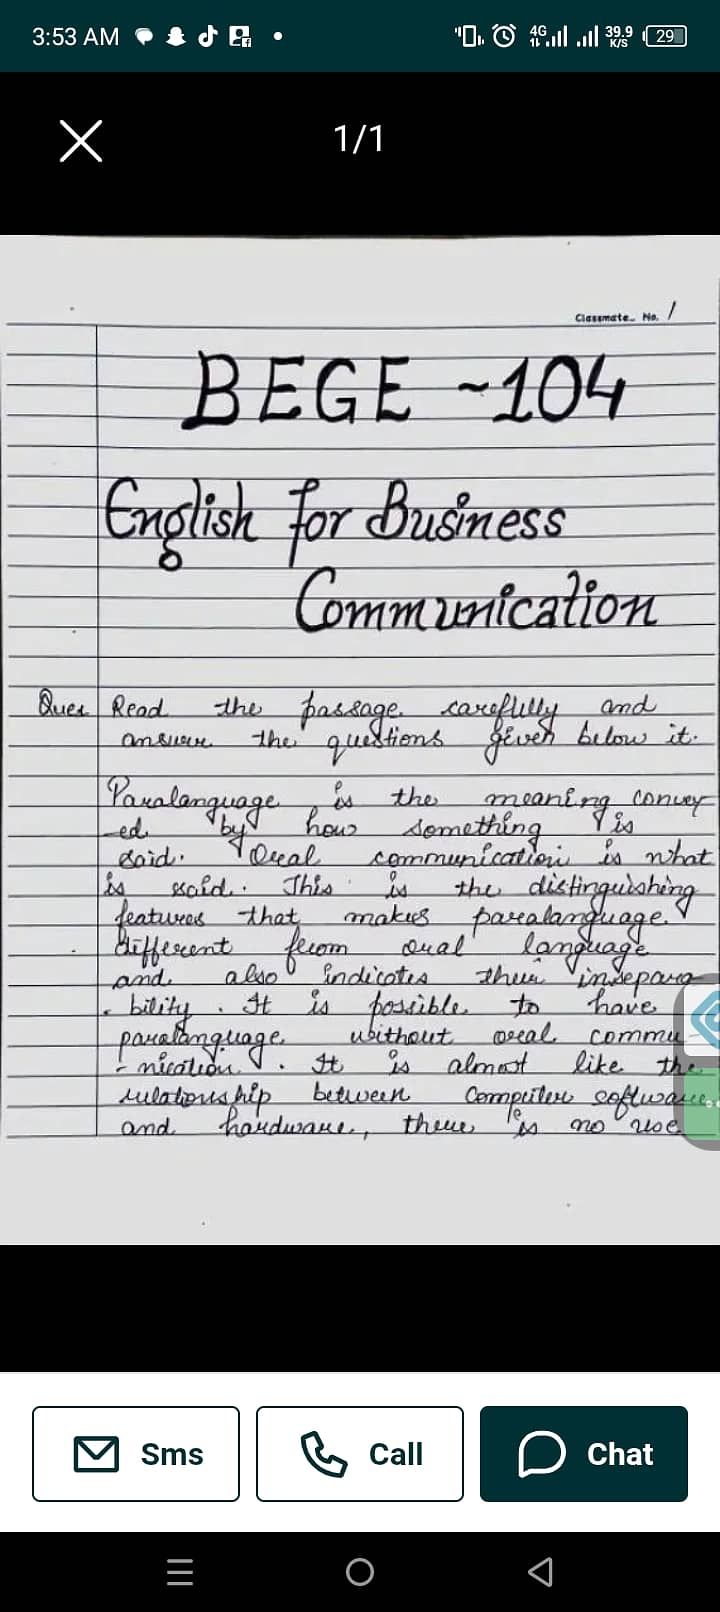 3:53 AM
4G
39.9
K/S
29
1/1
Classmate No. 1
BEGE ~104
English for Business
Communication
Ques Read the passage carefully and
answer the questions given below it.
Paralanguage is the meaning convey
-ed by how something is
said. Oral communication is what
is said. This is the distinguishing
features that makes paralanguage
different from oral language
and also indicates their insepara
- bility. It is possible to have
paralanguage without oral commu
- nication. It is almost like the
relationship between Computer software
and hardware, there is no use
Sms
Call
Chat